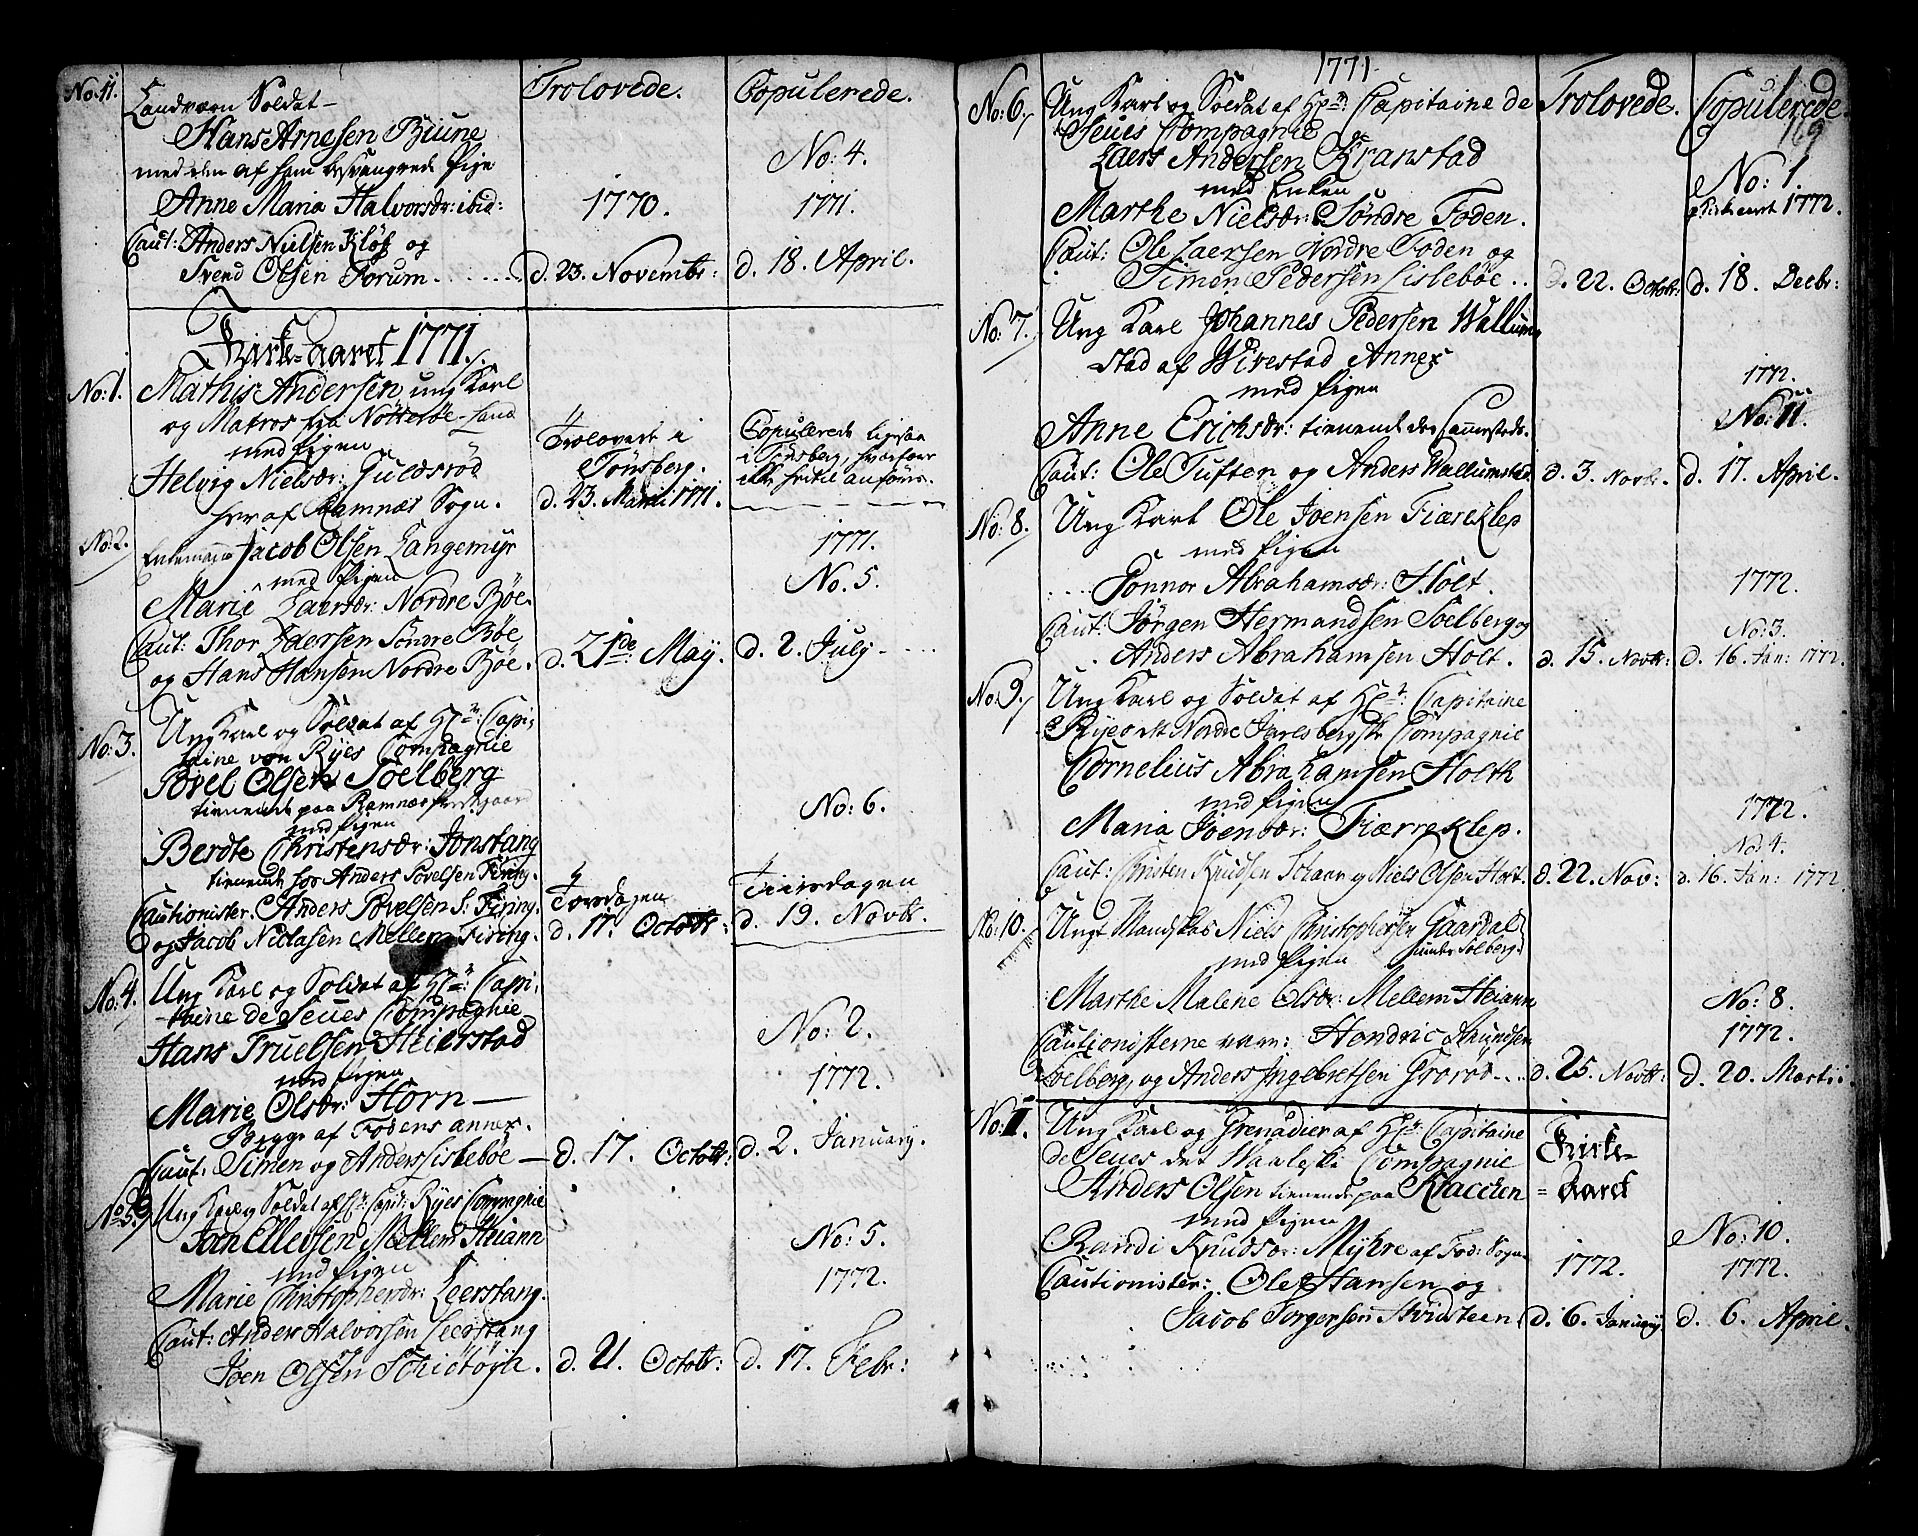 No. 11.
Landværn Soldat
Hans Arnesen Biune
med den af ham besvangrede Pige
Anne Maria Halvorsdr: ibid:
Caut: Anders Nielsen Kløf og
Svend Olsen Forum
Trolovede.
1770.
d. 23. Novembr:
Copulerede.
No: 4.
1771.
d. 18. April.
Kirke-Aaret 1771.
No: 1.
Mathis Andersen ung Karl
og Matros fra Nøtterøe-Land
med Pigen
Helvig Nielsdr: Guldsrød
her af Ramnæs Sogn.
Trolovede i
Tønsberg.
d. 23. Martii 1771.
Copulerede ligesaa
i Tønsberg, hvorfore
ikke hertil anføres.
No: 2.
Enkemand Jacob Olsen Langemyr
med Pigen
Marie Laersdr: Nordre Bøe.
Caut: Thor Laersen Søndre Bøe
og Hans Hansen Nordre Bøe.
d. 21de May.
1771.
No. 5.
d. 2. July
No: 3.
Ung Karl og Soldat af Hr: Capi-
taine von Ryes Compagnie
Povel Olsen Soelberg
tienende paa Ramnæs
med Pigen
Berdte Christensdr: Jonstang
tienende hos Anders Povelsen Firing.
Cautionister. Anders Povelsen S: Firing.
og Jacob Niclasen Mellem Firing.
Torsdagen
d. 17. Octobr:
No: 6.
Tiirsdagen
d. 19. Novbr.
No: 4.
Ung Karl og Soldat af Hr: Capi-
taine de Seues Compagnie
Hans Truelsen Heierstad
med Pigen
Marie Olsdr: Horn
Begge af Fodens annex.
Caut: Simen og Anders Lislebøe
d. 17. Octobr:
No: 2.
1772.
d. 2. January.
No: 5.
Ung Karl og Soldat af Hr: Capit: Ryes Compagnie
Joen Ellevsen Mellem Heiann
med Pigen
Marie Christophersdr: Leerstang.
Caut: Anders Halvorsen Leerstang
Joen Olsen
d. 21. Octobr:
No: 5.
1772.
d. 17. Febr:
1771.
169
No: 6.
Ung Karl og Soldat af Hr: Capitaine de
Seues Compagnie
Laers Andersen Kranstad
med Enken
Marthe Nielsdr: Søndre Foden.
Caut: Ole Laersen Nordre Foden og
Simon Pedersen Lislebøe
Trolovede.
d. 22. Octobr:
Copulerede.
No: 1
Kirkeaaret 1772.
d. 18. Decbr:
No: 7.
Ung Karl Johannes Pedersen Wallum-
stad af Wivestad Annex
med Pigen
Anne Erichsdr: tienende der sammesteds.
Caut: Ole Tuften og Anders Wallumstad
d. 3. Novbr.
1772.
No: 11.
d. 17. April.
No: 8.
Ung Karl Ole Joensen Fiæreklep
med Pigen
Gonnor Abrahamsdr: Holt.
Caut: Jørgen Hermandsen Soelberg og
Anders Abrahamsen Holt.
d. 15. Novbr:
1772.
No: 3.
d. 16. Jan: 1772.
No: 9.
Ung Karl og Soldat af Hr: Capitaine
Ryes Nordre Jarlsbergske Compagnie
Cornelius Abrahamsen Holth
med Pigen
Maria Joensdr: Fiærreklep.
Caut: Christen Knudsen og Niels Olsen Hort.
d. 22. Nov:
1772.
No: 4.
d. 16. Jan: 1772.
No: 10.
Ungt Mandskab Niels Christophersen Gaasdal
under Solberg
med Pigen
Marthe Malene Olsdr: Mellem Heiann
Cautionisterne vare: Hendric Amundsen
Soelberg, og Anders Ingebretsen Grorød
d. 25. Novbr:
No: 8.
1772.
d. 20. Martii
No: 1.
Ung Karl og Grenadier af Hr: Capitaine
de Seues det Waaleske Compagnie
Anders Olsen tienende paa Klacken
med Pigen
Randi Knudsdr: Myhre af Fod: Sogn
Cautionister: Ole Hansen og
Jacob Jørgensen Hvidsteen
Kirke-
Aaret
1772.
d. 6. January
No: 10.
1772.
d. 6. April.